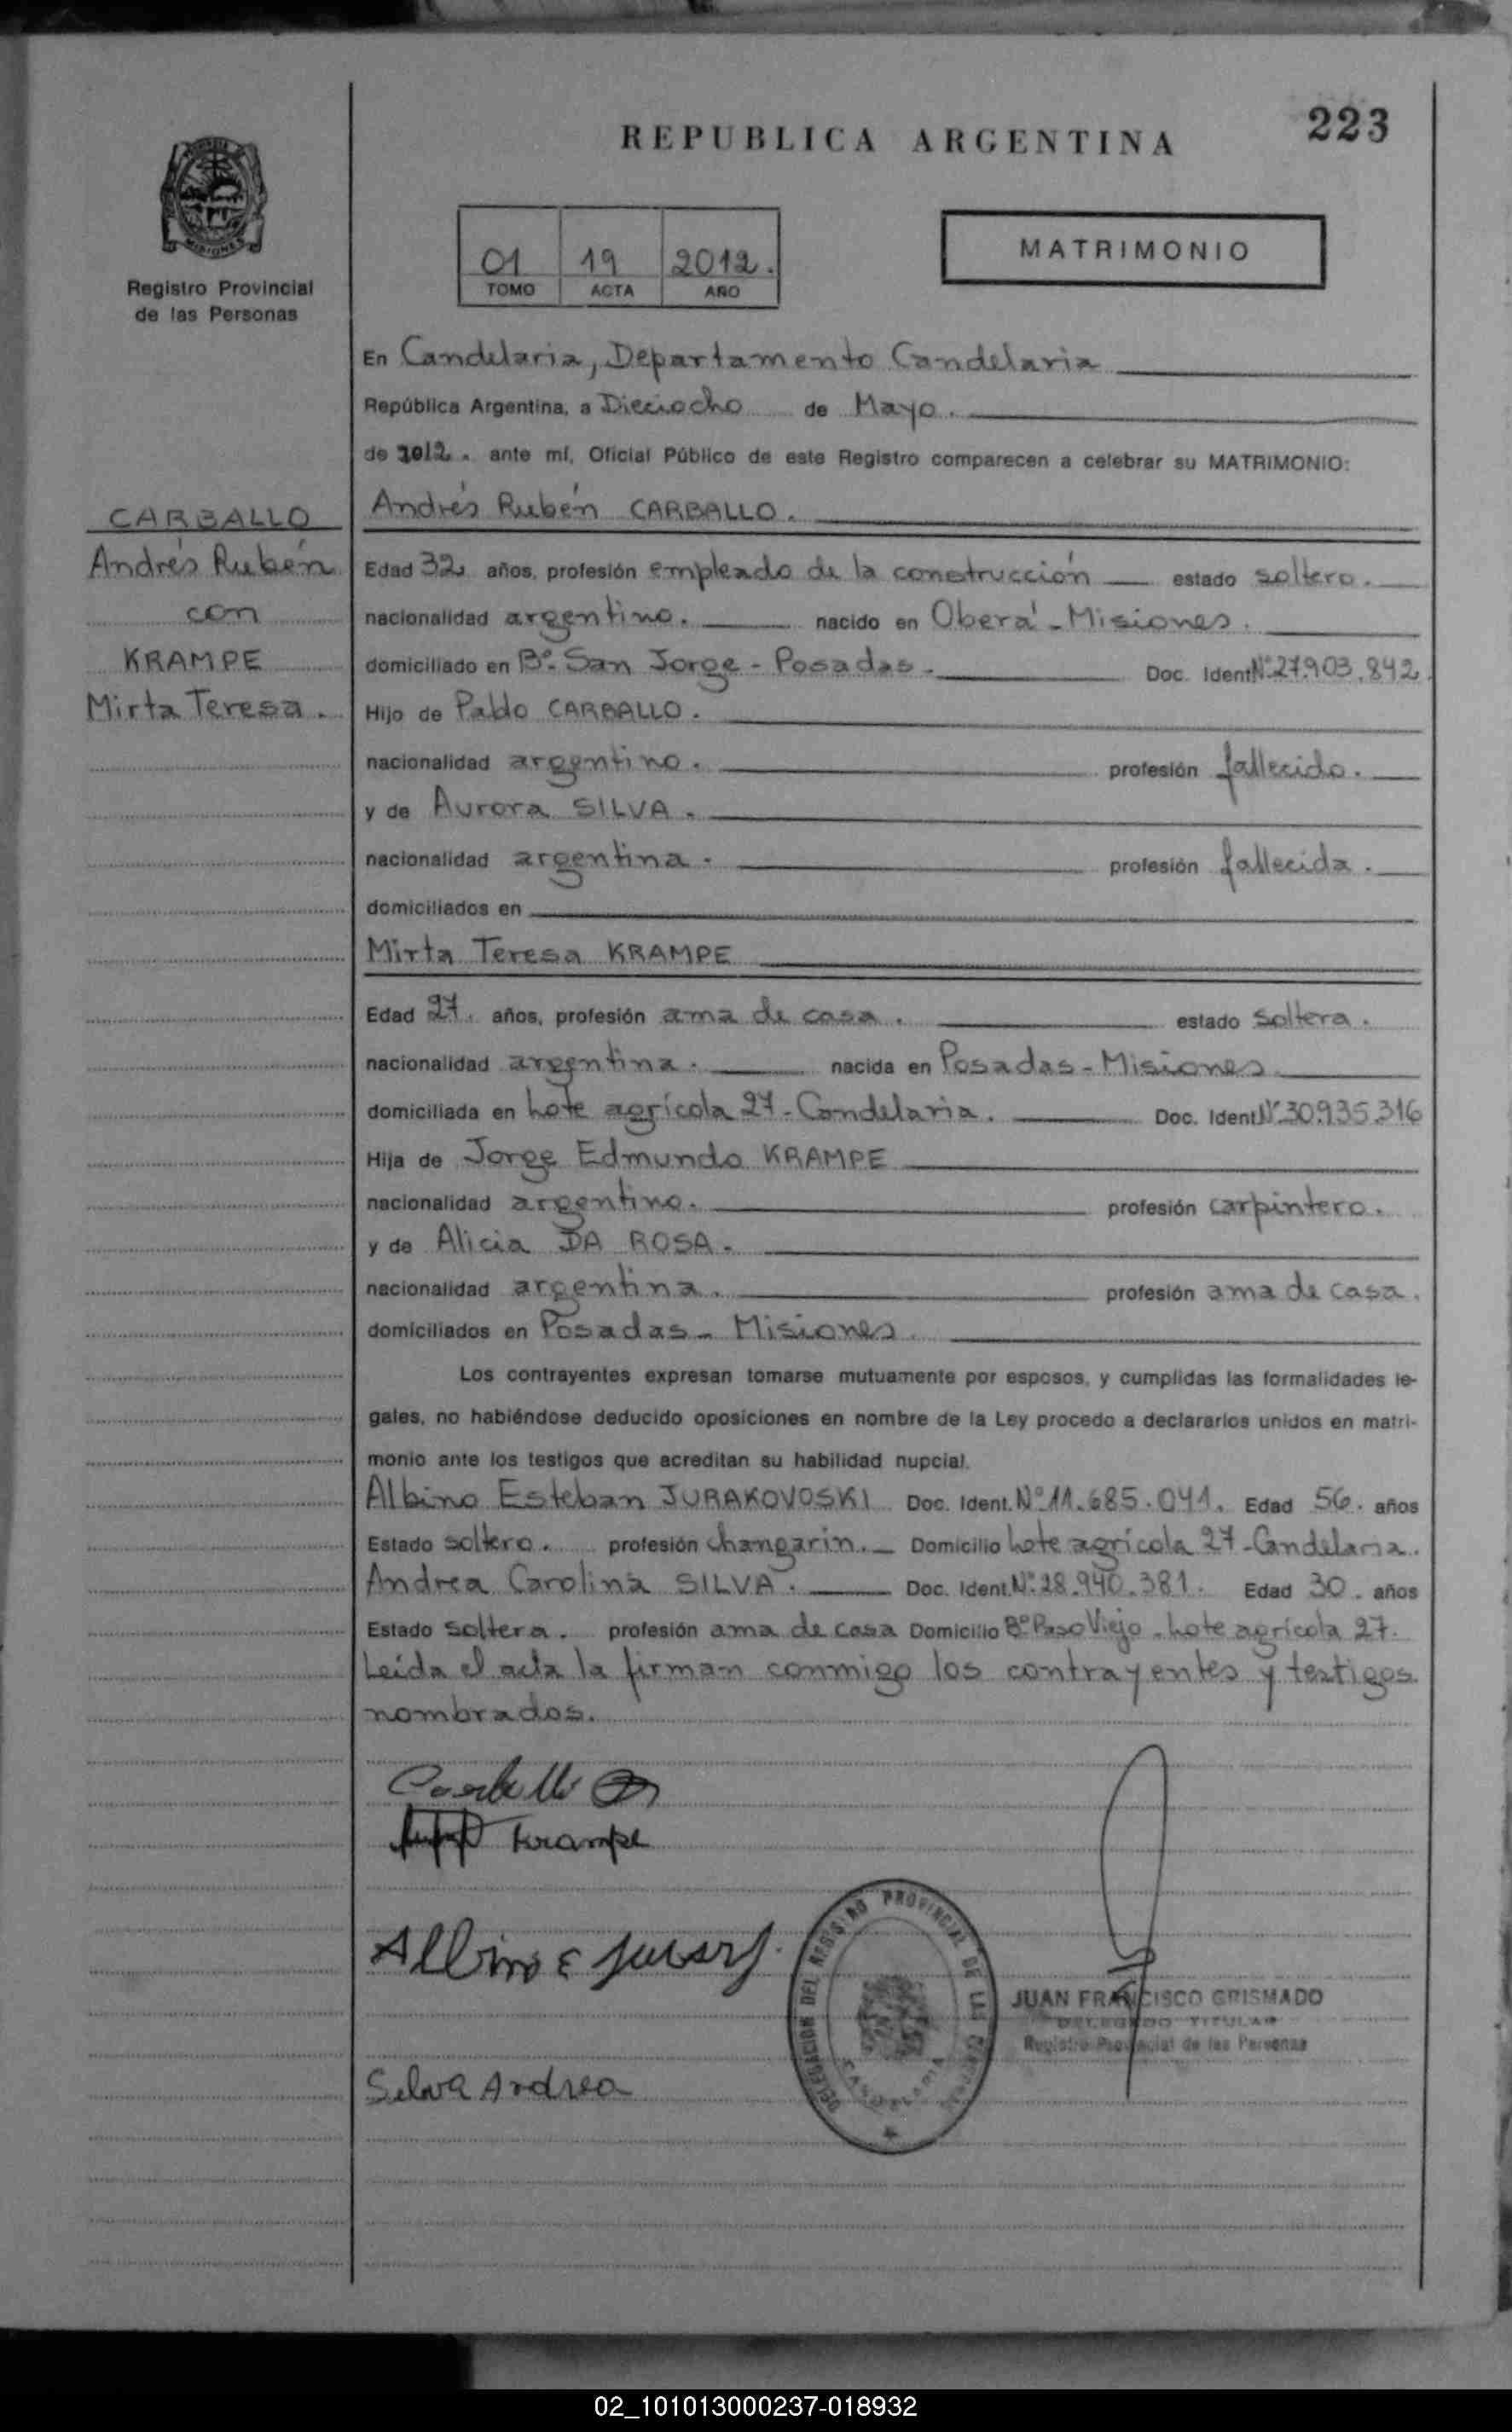 223
REPUBLICA ARGENTINA
MISIONES
Registro Provincial
de las Personas
01 19 2012.
TOMO ACTA AÑO
MATRIMONIO
En Candelaria, Departamento Candelaria
República Argentina, a Dieciocho de Mayo.
de 2012. ante mí, Oficial Público de este Registro comparecen a celebrar su MATRIMONIO:
CARBALLO
Andrés Rubén
con
KRAMPE
Mirta Teresa.
Andrés Rubén CARBALLO.
Edad 32 años, profesión empleado de la construcción estado soltero.
nacionalidad argentino. nacido en Oberá - Misiones.
domiciliado en Bº San Jorge - Posadas. Doc. Ident. Nº 27.903.842.
Hijo de Pablo CARBALLO.
nacionalidad argentino. profesión fallecido.
y de Aurora SILVA.
nacionalidad argentina. profesión fallecida.
domiciliados en
Mirta Teresa KRAMPE
Edad 27. años, profesión ama de casa. estado soltera.
nacionalidad argentina. nacida en Posadas - Misiones
domiciliada en Lote agrícola 27 - Candelaria. Doc. Ident. Nº 30.935.316
Hija de Jorge Edmundo KRAMPE
nacionalidad argentino. profesión carpintero.
y de Alicia DA ROSA.
nacionalidad argentina. profesión ama de casa.
domiciliados en Posadas - Misiones.
Los contrayentes expresan tomarse mutuamente por esposos, y cumplidas las formalidades le-
gales, no habiéndose deducido oposiciones en nombre de la Ley procedo a declararlos unidos en matri-
monio ante los testigos que acreditan su habilidad nupcial.
Albino Esteban JURAKOVOSKI Doc. Ident. Nº 11.685.041. Edad 56. años
Estado soltero. profesión changarin. Domicilio Lote agrícola 27 - Candelaria.
Andrea Carolina SILVA. Doc. Ident. Nº 28.940.381. Edad 30. años
Estado soltera. profesión ama de casa Domicilio Bº Paso Viejo - Lote agrícola 27.
Leída el acta la firman conmigo los contrayentes y testigos
nombrados.
Krampe
Albino E
DELEGACION DEL REGISTRO PROVINCIAL DE LAS PERSONAS
CANDELARIA
JUAN FRANCISCO GRISMADO
DELEGADO TITULAR
Registro Provincial de las Personas
Silva Andrea
02_101013000237-018932